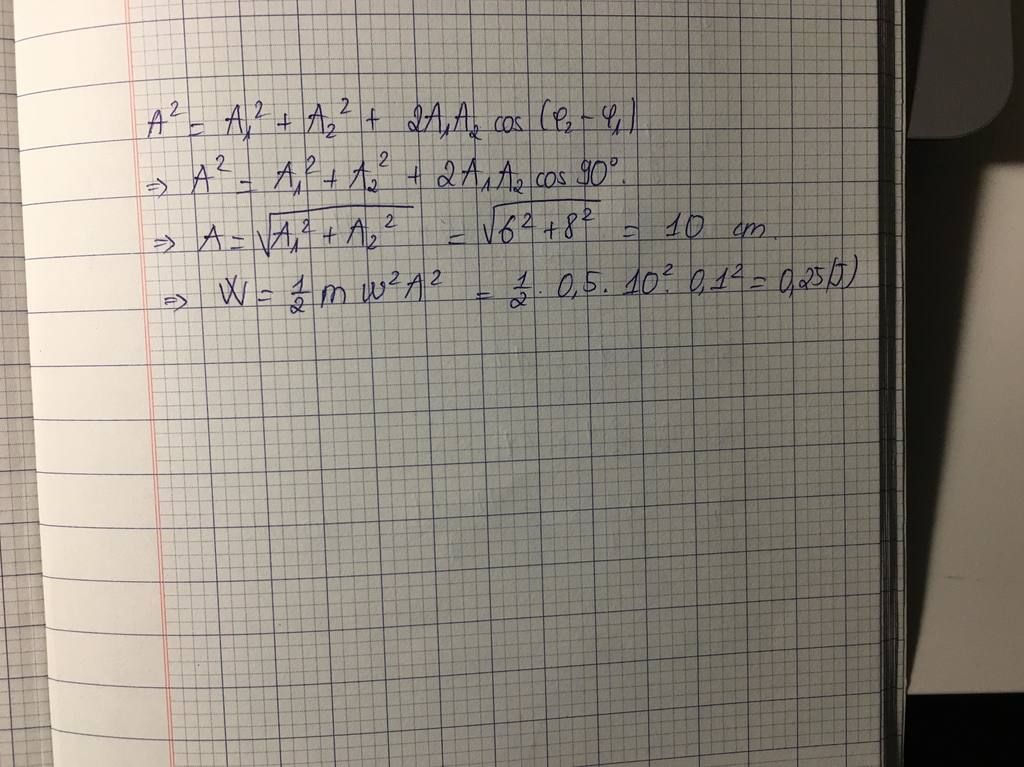 A² = A₁² + A₂² + 2A₁A₂ cos (φ₂ - φ₁)
⇒ A² = A₁² + A₂² + 2A₁A₂ cos 90°.
⇒ A = √(A₁² + A₂²) = √(6² + 8²) = 10 cm.
⇒ W = 1/2 m ω² A² = 1/2 . 0,5 . 10² . 0,1² = 0,25 (J)